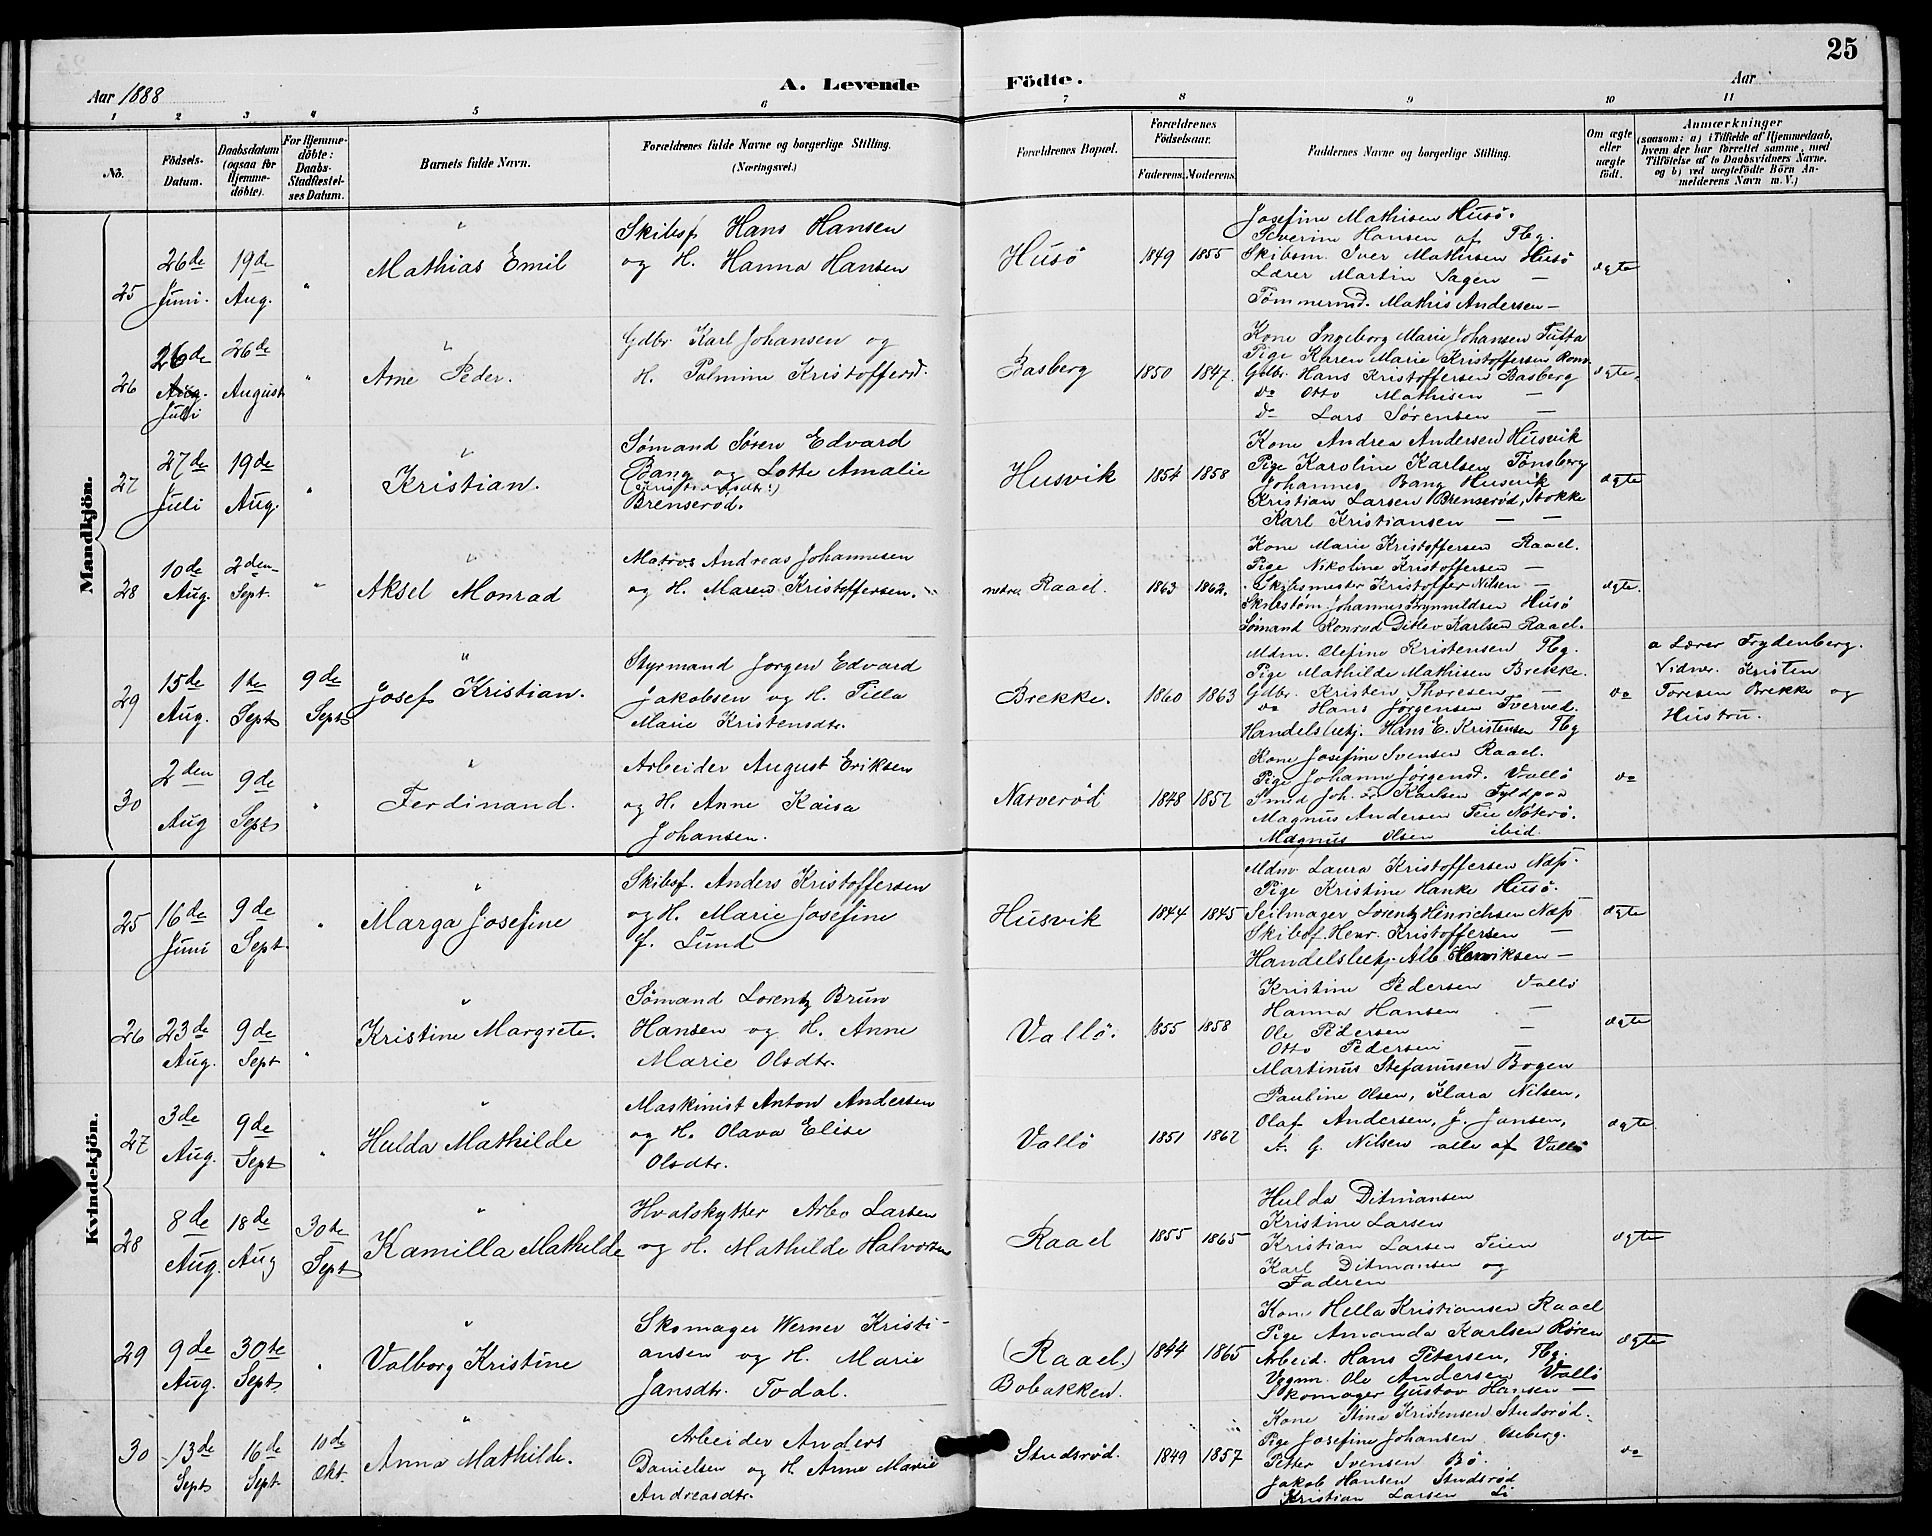 25
Aar 1888
A. Levende
Födte.
Aar
1 2 3 4 5 6 7 8 9 10 11
No.
Födsels-Datum.
Daabsdatum (ogsaa for Hjemme-döbte).
For Hjemme-döbte: Daabs-Stadfæstel-ses Datum.
Barnets fulde Navn.
Forældrenes fulde Navne og borgerlige Stilling. (Næringsvei.)
Forældrenes Bopæl.
Forældrenes Födselsaar.
Faderens. Moderens.
Faddernes Navne og borgerlige Stilling.
Om ægte eller uægte født.
Anmærkninger
(saasom: a) i Tilfælde af Hjemmedaab, hvem der har forrettet samme, med Tilföielse af to Daabsvidners Navne, og b) ved uegtefödte Börn An-melderens Navn m. V.)
Mandkjön.
25
26de Juni.
19de Aug.
"
Mathias Emil
Skibsf. Hans Hansen
og H. Hanna Hansen
Husö
1849 1855
Josefine Mathisen Husö.
Severine Hansen af Tbg.
Skibsm. Iver Mathisen Husö
Lærer Martin Sagen —
Tømmermd. Mathis Andersen —
ægte
26
26de Aug. Juli
26de August
"
Arne Peder.
Gdbr. Karl Johansen og
H. Palmine Kristoffersd.
Basberg
1850 1847.
Kone Ingeborg Marie Johansen Tufta
Pige Karen Marie Kristoffersen Rom.
Gdbr. Hans Kristoffersen Basberg
do Otto Mathisen —
do Lars Sørensen —
ægte.
27
27de Juli
19de Aug.
"
Kristian.
Sømand Søren Edvard
Bang og Lotte Amalie
Brenserød.
Husvik
1854 1858
Kone Andrea Andersen Husvik
Pige Karoline Karlsen Tønsberg
Johannes Bang Husvik
Kristian Larsen Brenserød, Stokke
Karl Kristiansen — —
ægte
28
10de Aug.
2den Sept.
"
Aksel Monrad
Matros Andreas Johannesen
og H. Maren Kristoffersen.
Raael.
1863 1862.
Kone Marie Kristoffersen Raael.
Pige Nikoline Kristoffersen —
Skibsmester Kristoffer Nilsen —
Skibstøm. Johannes Brynnildsen Husö
Sømand Konrad Ditlev Karlsen Raael.
ægte.
29
15de Aug.
1te Sept
9de Sept
"
Josef Kristian.
Styrmand Jørgen Edvard
Jakobsen og H. Tilla
Marie Kristensdtr.
Brekke.
1860 1863
Mdm. Olefine Kristensen Tbg.
Pige Mathilde Mathisen Brekke.
Gdbr. Kristen Thoresen —
do Hans Jørgensen Tverved.
Handelsbetj. Hans E. Kristensen Tbg
do
a Lærer Frydenberg.
Vidner. Kristen
Toresen Brekke og
Hustru.
30
2den Aug
9de Sept
"
Ferdinand.
Arbeider August Eriksen
og H. Anne Kaisa
Johansen.
Narverød
1848 1857
Kone Josefine Svensen Raael.
Pige Johanne Jørgensd. Vallö
Smed Joh. Fr. Karlsen Fyldpaa
Magnus Andersen Teie Nøterö.
Magnus Olsen ibid.
do
Kvindekjön.
25
16de Juni
9de Sept.
"
Marga Josefine
Skibsf. Anders Kristoffersen
og H. Marie Josefine
f. Lund
Husvik
1844 1845
Mdm. Laura Kristoffersen Næs.
Pige Kristine Hanke Husö.
Seilmager Lorentz Hinrichsen Næs
Skibsf. Henr. Kristoffersen —
Handelsbetj. Alb. Henriksen —
ægte
26
23de Aug.
9de Sept
"
Kristine Margrete.
Sømand Lorentz Brun
Hansen og H. Anne
Marie Olsdtr.
Vallö.
1855 1858
Kristine Pedersen Vallö
Hanna Hansen —
Ole Pedersen —
Otto Pedersen —
Martinus Stefanusen Bogen
ægte
27
3de Aug.
9de Sept
"
Hulda Mathilde
Maskinist Anton Andersen
og H. Olava Elise
Olsdtr.
Vallö
1851 1862
Pauline Olsen, Klara Nilsen,
Olaf Andersen, J. Jansen,
A. G. Nilsen alle af Vallö
ægte
28
8de Aug.
18de Aug
30te Sept
"
Kamilla Mathilde
Hvalskytter Arbo Larsen
og H. Mathilde Halvorsen
Raael
1855 1865
Hulda Ditmansen
Kristine Larsen
Kristian Larsen Teien
Karl Ditmansen og
Faderen
ægte
29
9de Aug.
30te Sept.
"
Valborg Kristine
Skomager Werner Kristi-
ansen og H. Marie
Jansdtr. Todal.
(Raael.)
Bobakken.
1844 1865
Kone Hella Kristiansen Raael
Pige Amanda Karlsen Røren
Arbeid. Hans Petersen, Tbg.
Vognm. Ole Andersen Vallö
Skomager Gustav Hansen —
ægte
30
13de Sept
16de Sept.
10de Okt.
"
Anna Mathilde.
Arbeider Anders
Danielsen og H. Anne Marie
Andreasdtr.
Studsrød.
1849 1857
Kone Stina Kristensen Studsrød.
Pige Josefine Johansen Oseberg.
Petter Svensen Bö.
Jakob Hansen Studsrød
Kristian Larsen Li
do